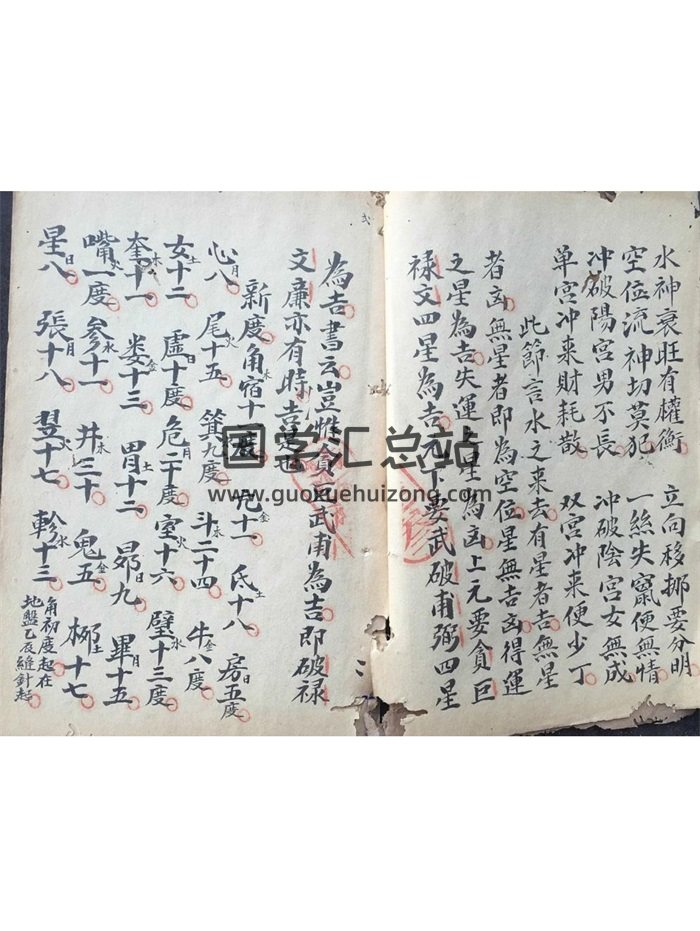 水神衰旺有權衡 立向移挪要分明
空位流神切莫犯 一絲失竄便無情
冲破陽宮男不長 冲破陰宮女無成
单宮冲来財耗散 双宮冲来便少丁
此節言水之来去有星者吉無星
者凶無星者即為空位星無吉凶得運
之星為吉失運之星為凶上元要貪巨
禄文四星為吉元下要武破甫弼四星
為吉書云豈惟貪巨武甫為吉即破禄
文廉亦有時吉是也
新度角木宿十二度 亢金十一 氐土十八 房日五度
心月八 尾火十五 箕水九度 斗木二十四 牛金八度
女土十二 虚日十度 危月二十度 室火十六 壁水十三度
奎木十一 娄金十三 胃土十二 昴日九 畢月十五
嘴火一度 参水十一 井木三十 鬼金五 栁土十七
星日八 張月十八 翌火十七 軫水十三
角初度起在
地盤乙辰縫針起
国学汇总站
www.guoxuehuizong.com